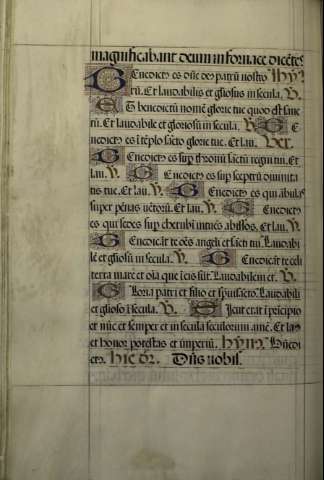 magnificabant deum in fornace dicētes
Benedict9 es dñe de9 patrū nostro Hym
rū. Et laudabilis et gl'iosus in secula. V.
Et benedictū nomē glorie tue quod est sanc
tū. Et laudabile et gloriosū in secula. V. Be
nedict9 es ī tēplo sacto glorie tue. Et lau.
Benedict9 es sup thronū sactū regni tui. Et
lau. V. Benedict9 es sup sceptrū diuinita
tis tue. Et lau. V. Benedict9 es qui ābulas
super penas uētorū. Et lau. V. Benedict9
es qui sedes sup cherubī abissos. Et lau. V.
Benedicāt te oēs angeli et sācti tui. Laudabi
lē et gl'iosū in secula. V. Benedicāt te celi
terra mare et oīa que ī eis sūt. Laudabilem et. V.
Gloria patri et filio et spūi sacto. Laudabili
et glioso ī secula. V. Sicut erat ī principio
et nūc et semper et in secula seculorum amē. Et lau
et honor potestas et imperiū. Hym. Būedi
ct9. hic dr. Dñs uobis.